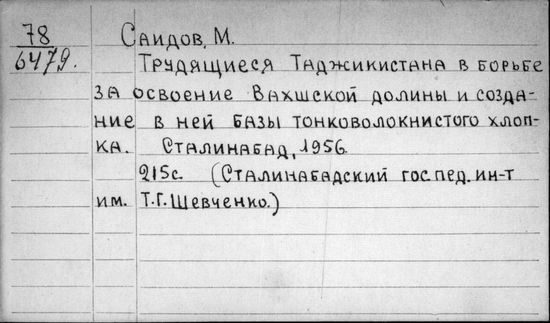 78 Саидов, М.
6479. Трудящиеся Таджикистана в борьбе
за освоение Вахшской долины и созда-
ние в ней базы тонковолокнистого хлоп-
ка. Сталинабад, 1956.
215с. (Сталинабадский гос пед. ин-т
им. Т.Г. Шевченко.)